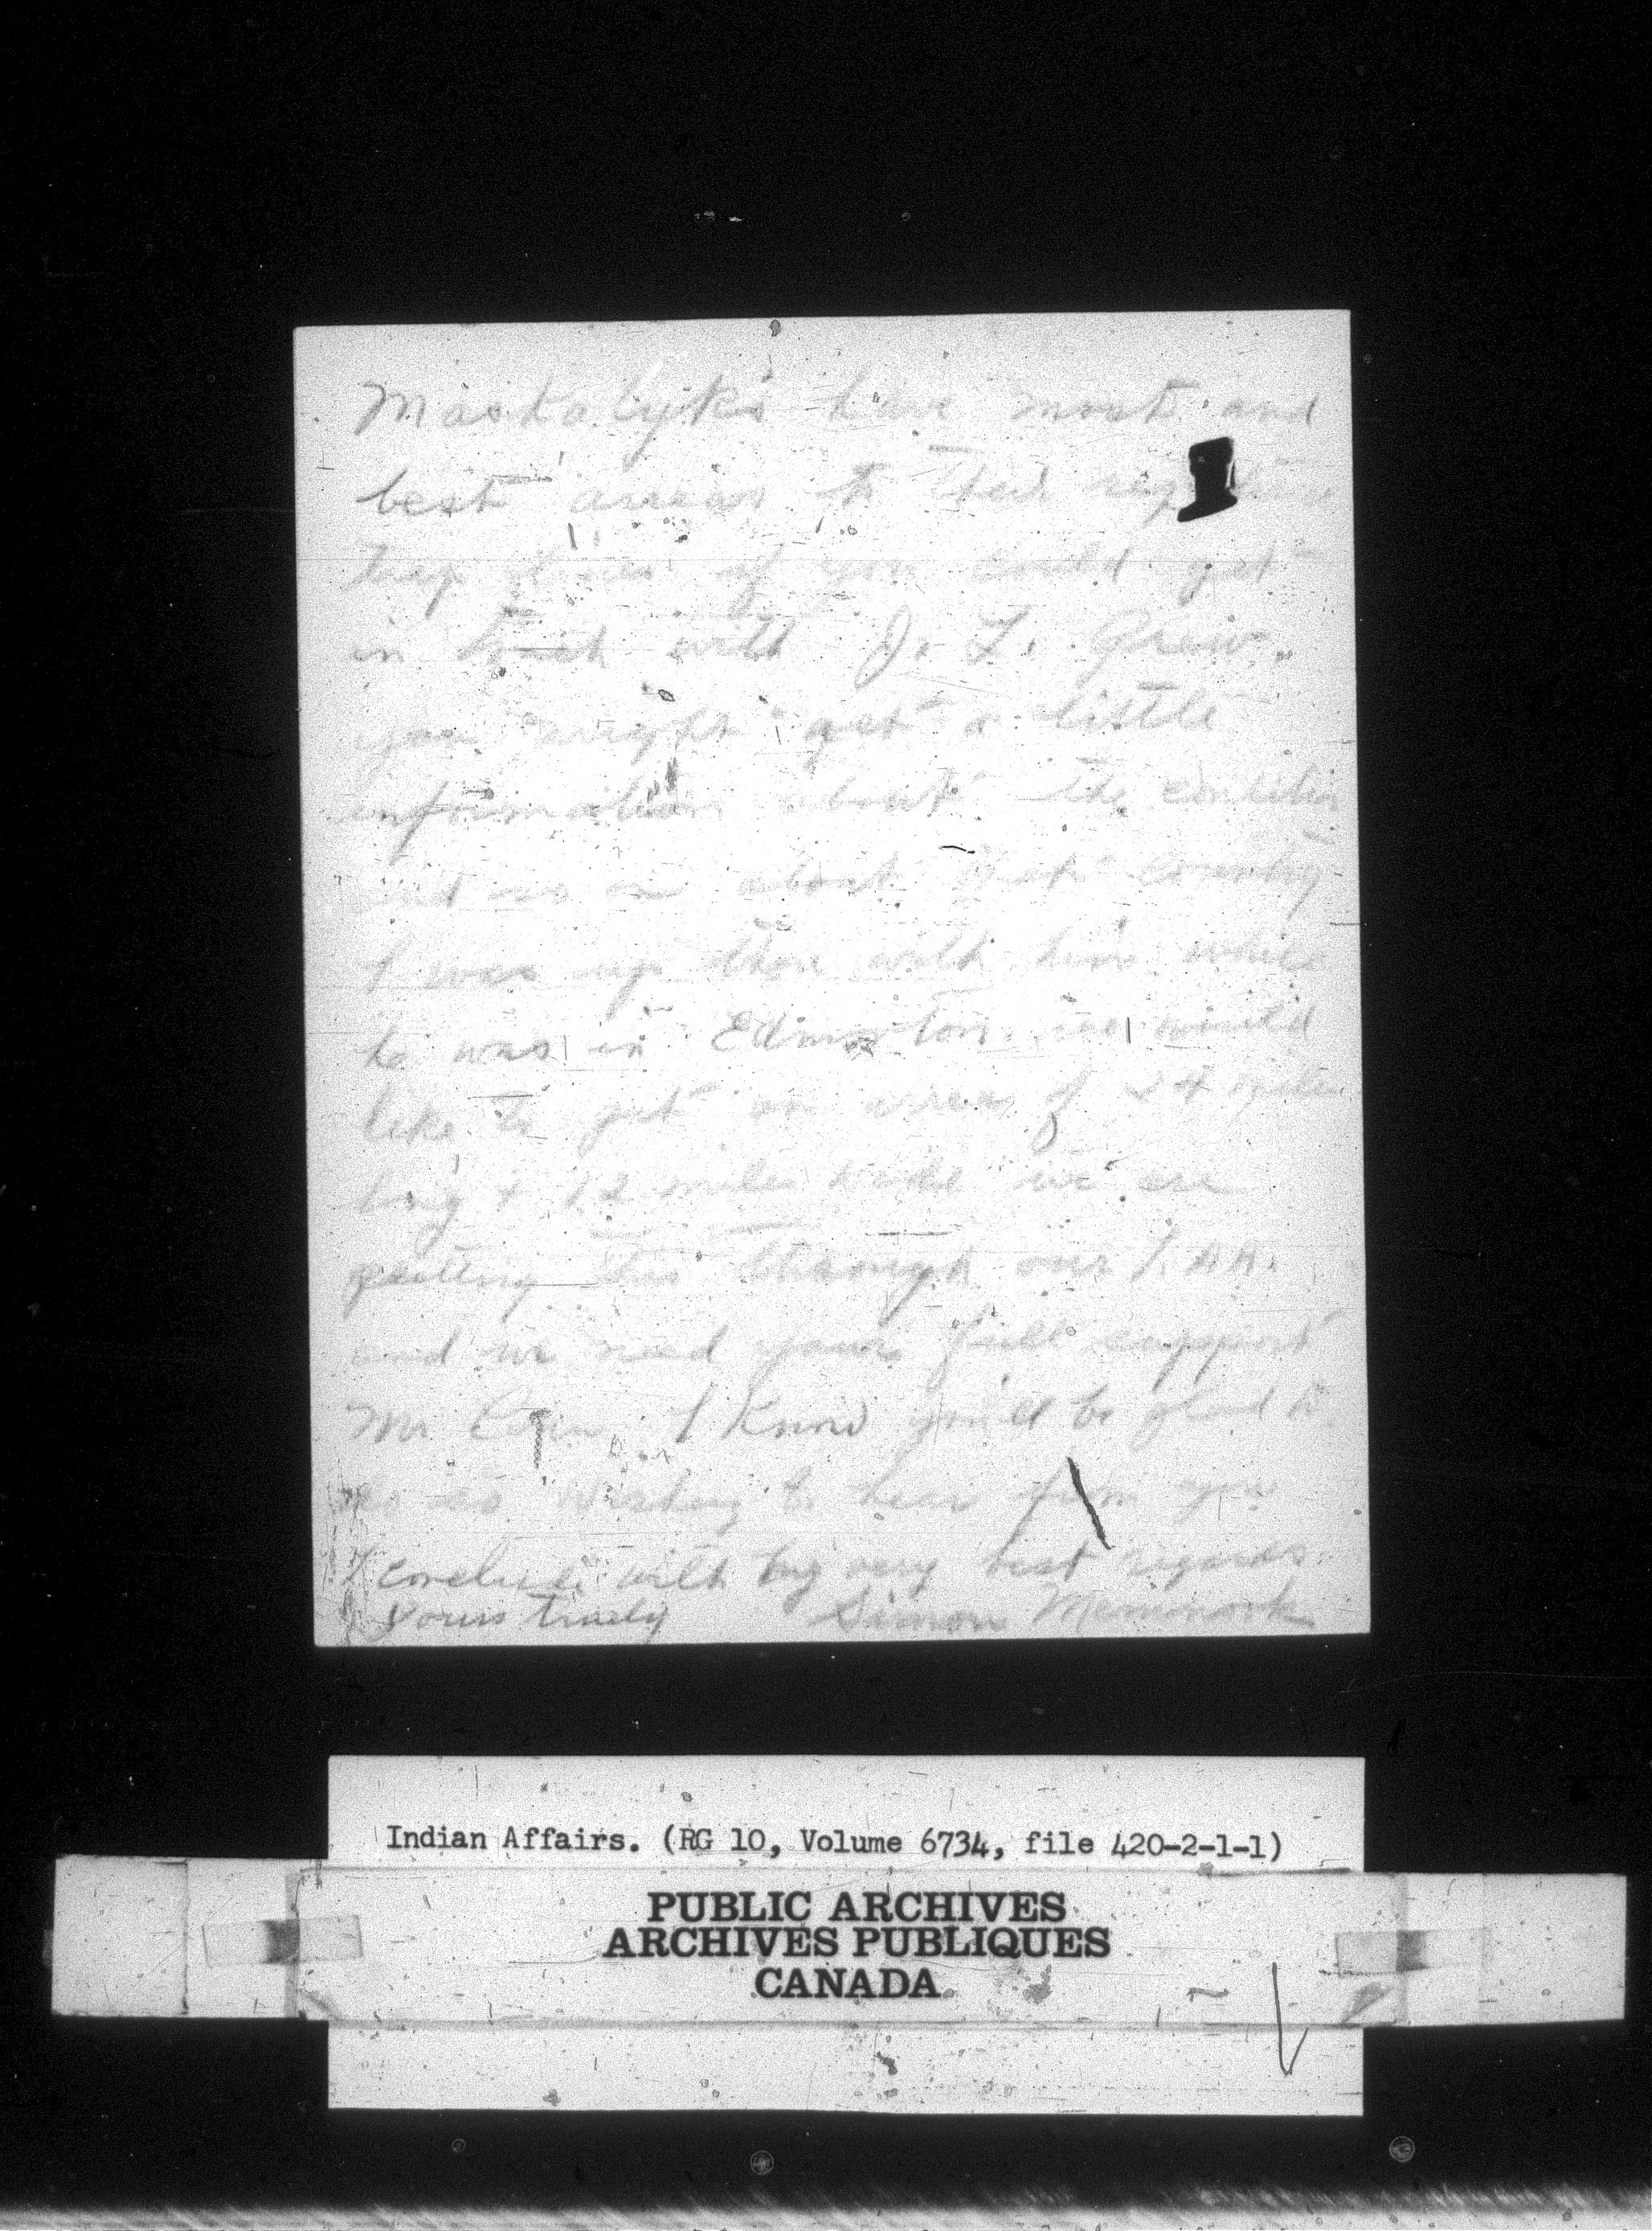 Maskolyks have most and
best areas to their
trap lines if you could get
in touch with J. L. Grew.
you might get a little
information about the condition
and so on about that country
I was up there with him while
he was in Edmonton. we would
like to get an area of 24 miles
long & 12 miles wide we are
putting this through our I. A A.
and we need your full support
Mr I know you'll be glad to
do so Wishing to hear from you
I conclude with my very best regards.
Yours truely Simon
Indian Affairs. (RG 10, Volume 6734, file 420-2-1-1)
PUBLIC ARCHIVES
ARCHIVES PUBLIQUES
CANADA